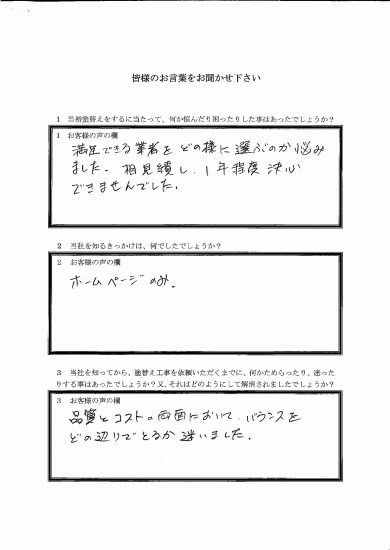 皆様のお言葉をお聞かせ下さい
1 当初塗替えをするに当たって、何か悩んだり困ったりした事はあったでしょうか?
1 お客様の声の欄
満足できる業者をどの様に選ぶのか悩み
ました。相見積し、1年程度決心
できませんでした。
2 当社を知るきっかけは、何でしたでしょうか?
2 お客様の声の欄
ホームページのみ。
3 当社を知ってから、塗替え工事を依頼いただくまでに、何かためらったり、迷った
りする事はあったでしょうか?又、それはどのようにして解消されましたでしょうか?
3 お客様の声の欄
品質とコストの両面において、バランスを
どの辺りでとるか迷いました。